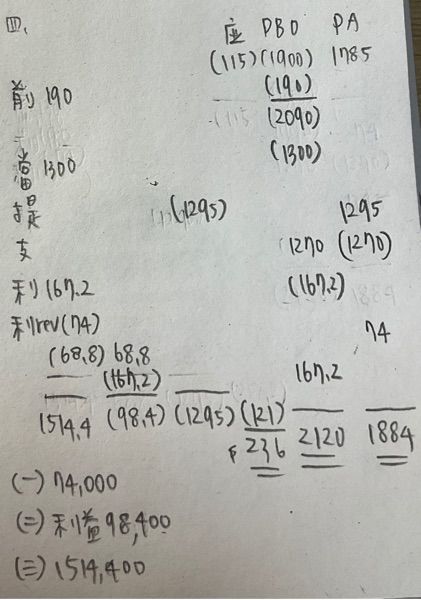 四、
应 DBO PA
(115) (1900) 1785
前 190 (190)
(2090)
當 1300 (1300)
提 (1295) 1295
支 1270 (1270)
利 167.2 (167.2)
利rev (74) 74
(68.8) 68.8
(167.2) 167.2
1514.4 (98.4) (1295) (121)
236 2120 1884
(一) 74,000
(二) 利益 98,400
(三) 1514,400